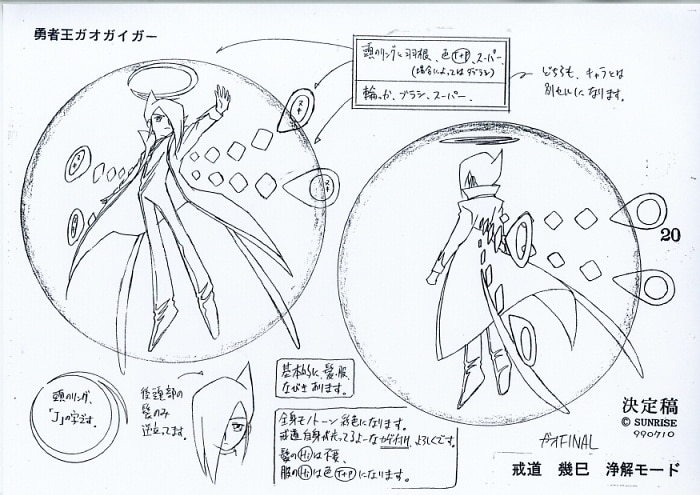 勇者王ガオガイガー
頭のリングと羽根、色T+P、スーパー、
(場合によってはダブラシ)
輪、か、ブラシ、スーパー。
どちらも、キャラとは
別セルになります。
スキ
スキ
20
頭のリング、
「J」の字です。
後頭部の
髪のみ
逆立ってます。
基本的に、髪、服
なびきあります。
全身モノトーン彩色になります。
戒道自身が光ってるよーな
よろしくです。
髪のHiは不要、
服のHiは色T+Pになります。
決定稿
© SUNRISE
990710
ガオFINAL
戒道 幾巳 浄解モード